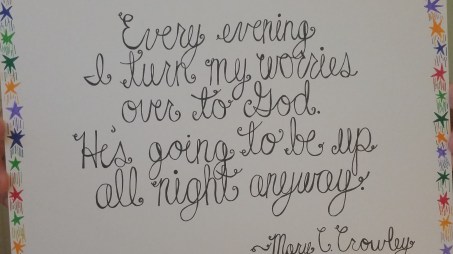 Every evening
I turn my worries
over to God.
He's going to be up
all night anyway.
~Mary C. Crowley